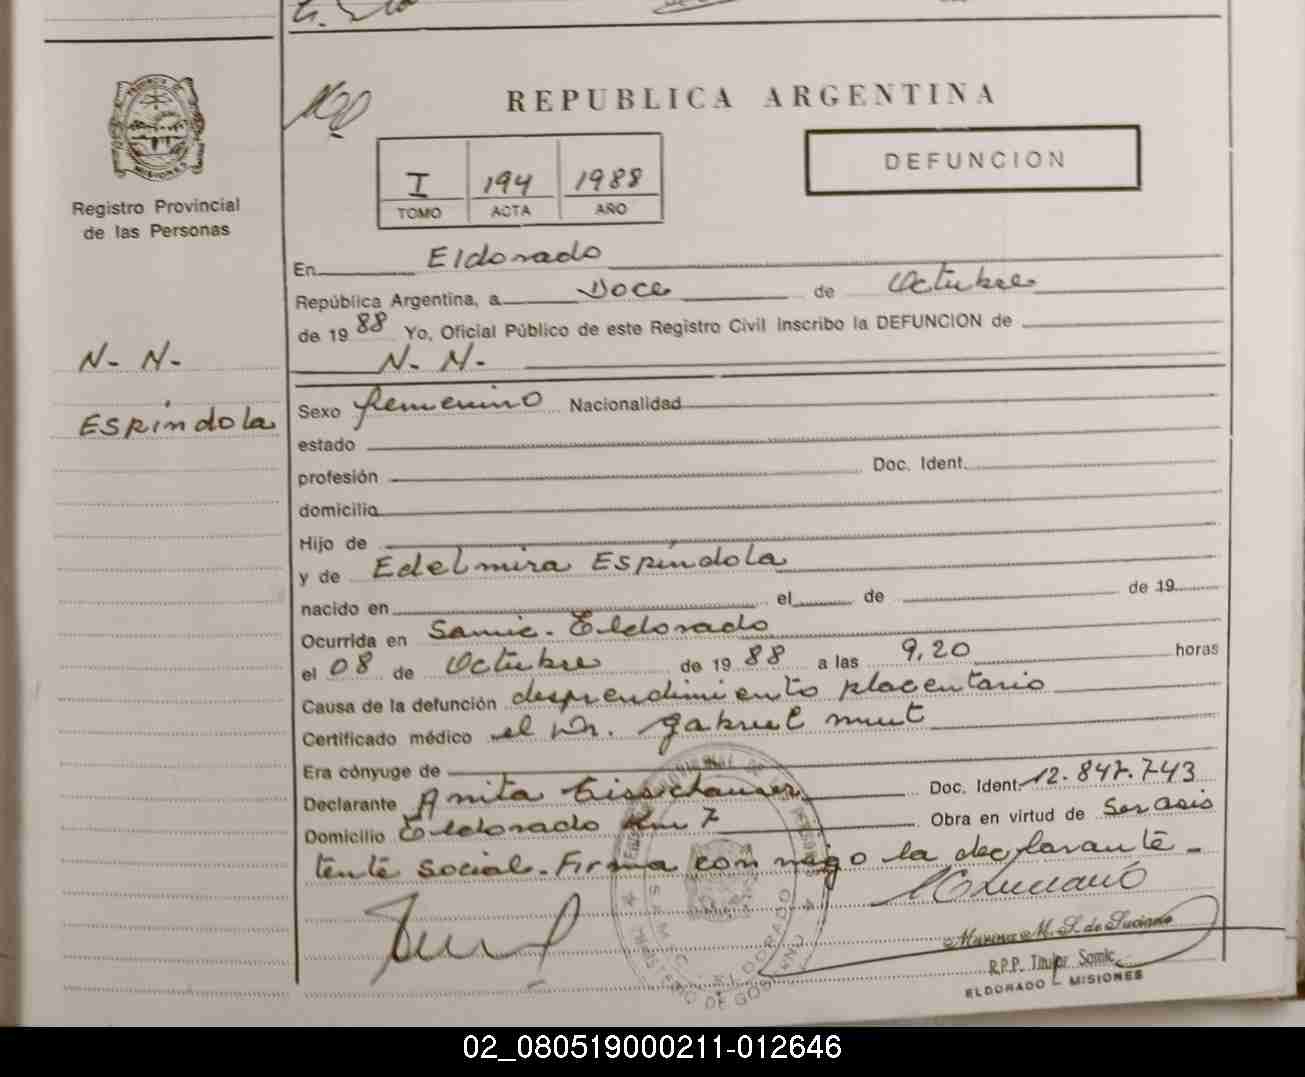 REPUBLICA ARGENTINA
DEFUNCION
I 194 1988
TOMO ACTA AÑO
PROVINCIA DE MISIONES
Registro Provincial
de las Personas
N. N.
Espíndola
En Eldorado
República Argentina, a Doce de Octubre
de 1988 Yo, Oficial Público de este Registro Civil Inscribo la DEFUNCION de
N. N.
Sexo femenino Nacionalidad
estado
profesión Doc. Ident.
domicilio
Hijo de
y de Edelmira Espíndola
nacido en el de de 19
Ocurrida en Samic. Eldorado
el 08 de Octubre de 1988 a las 9,20 horas
Causa de la defunción desprendimiento placentario
Certificado médico el Dr. Gabriel
Era cónyuge de
Declarante Anita Doc. Ident. 12.847.743
Domicilio Eldorado Km 7 Obra en virtud de Ser asis
tente social. Firma con migo la declarante -
M. S. de Luciano
R.P.P. Titular Samic
ELDORADO - MISIONES
02_080519000211-012646